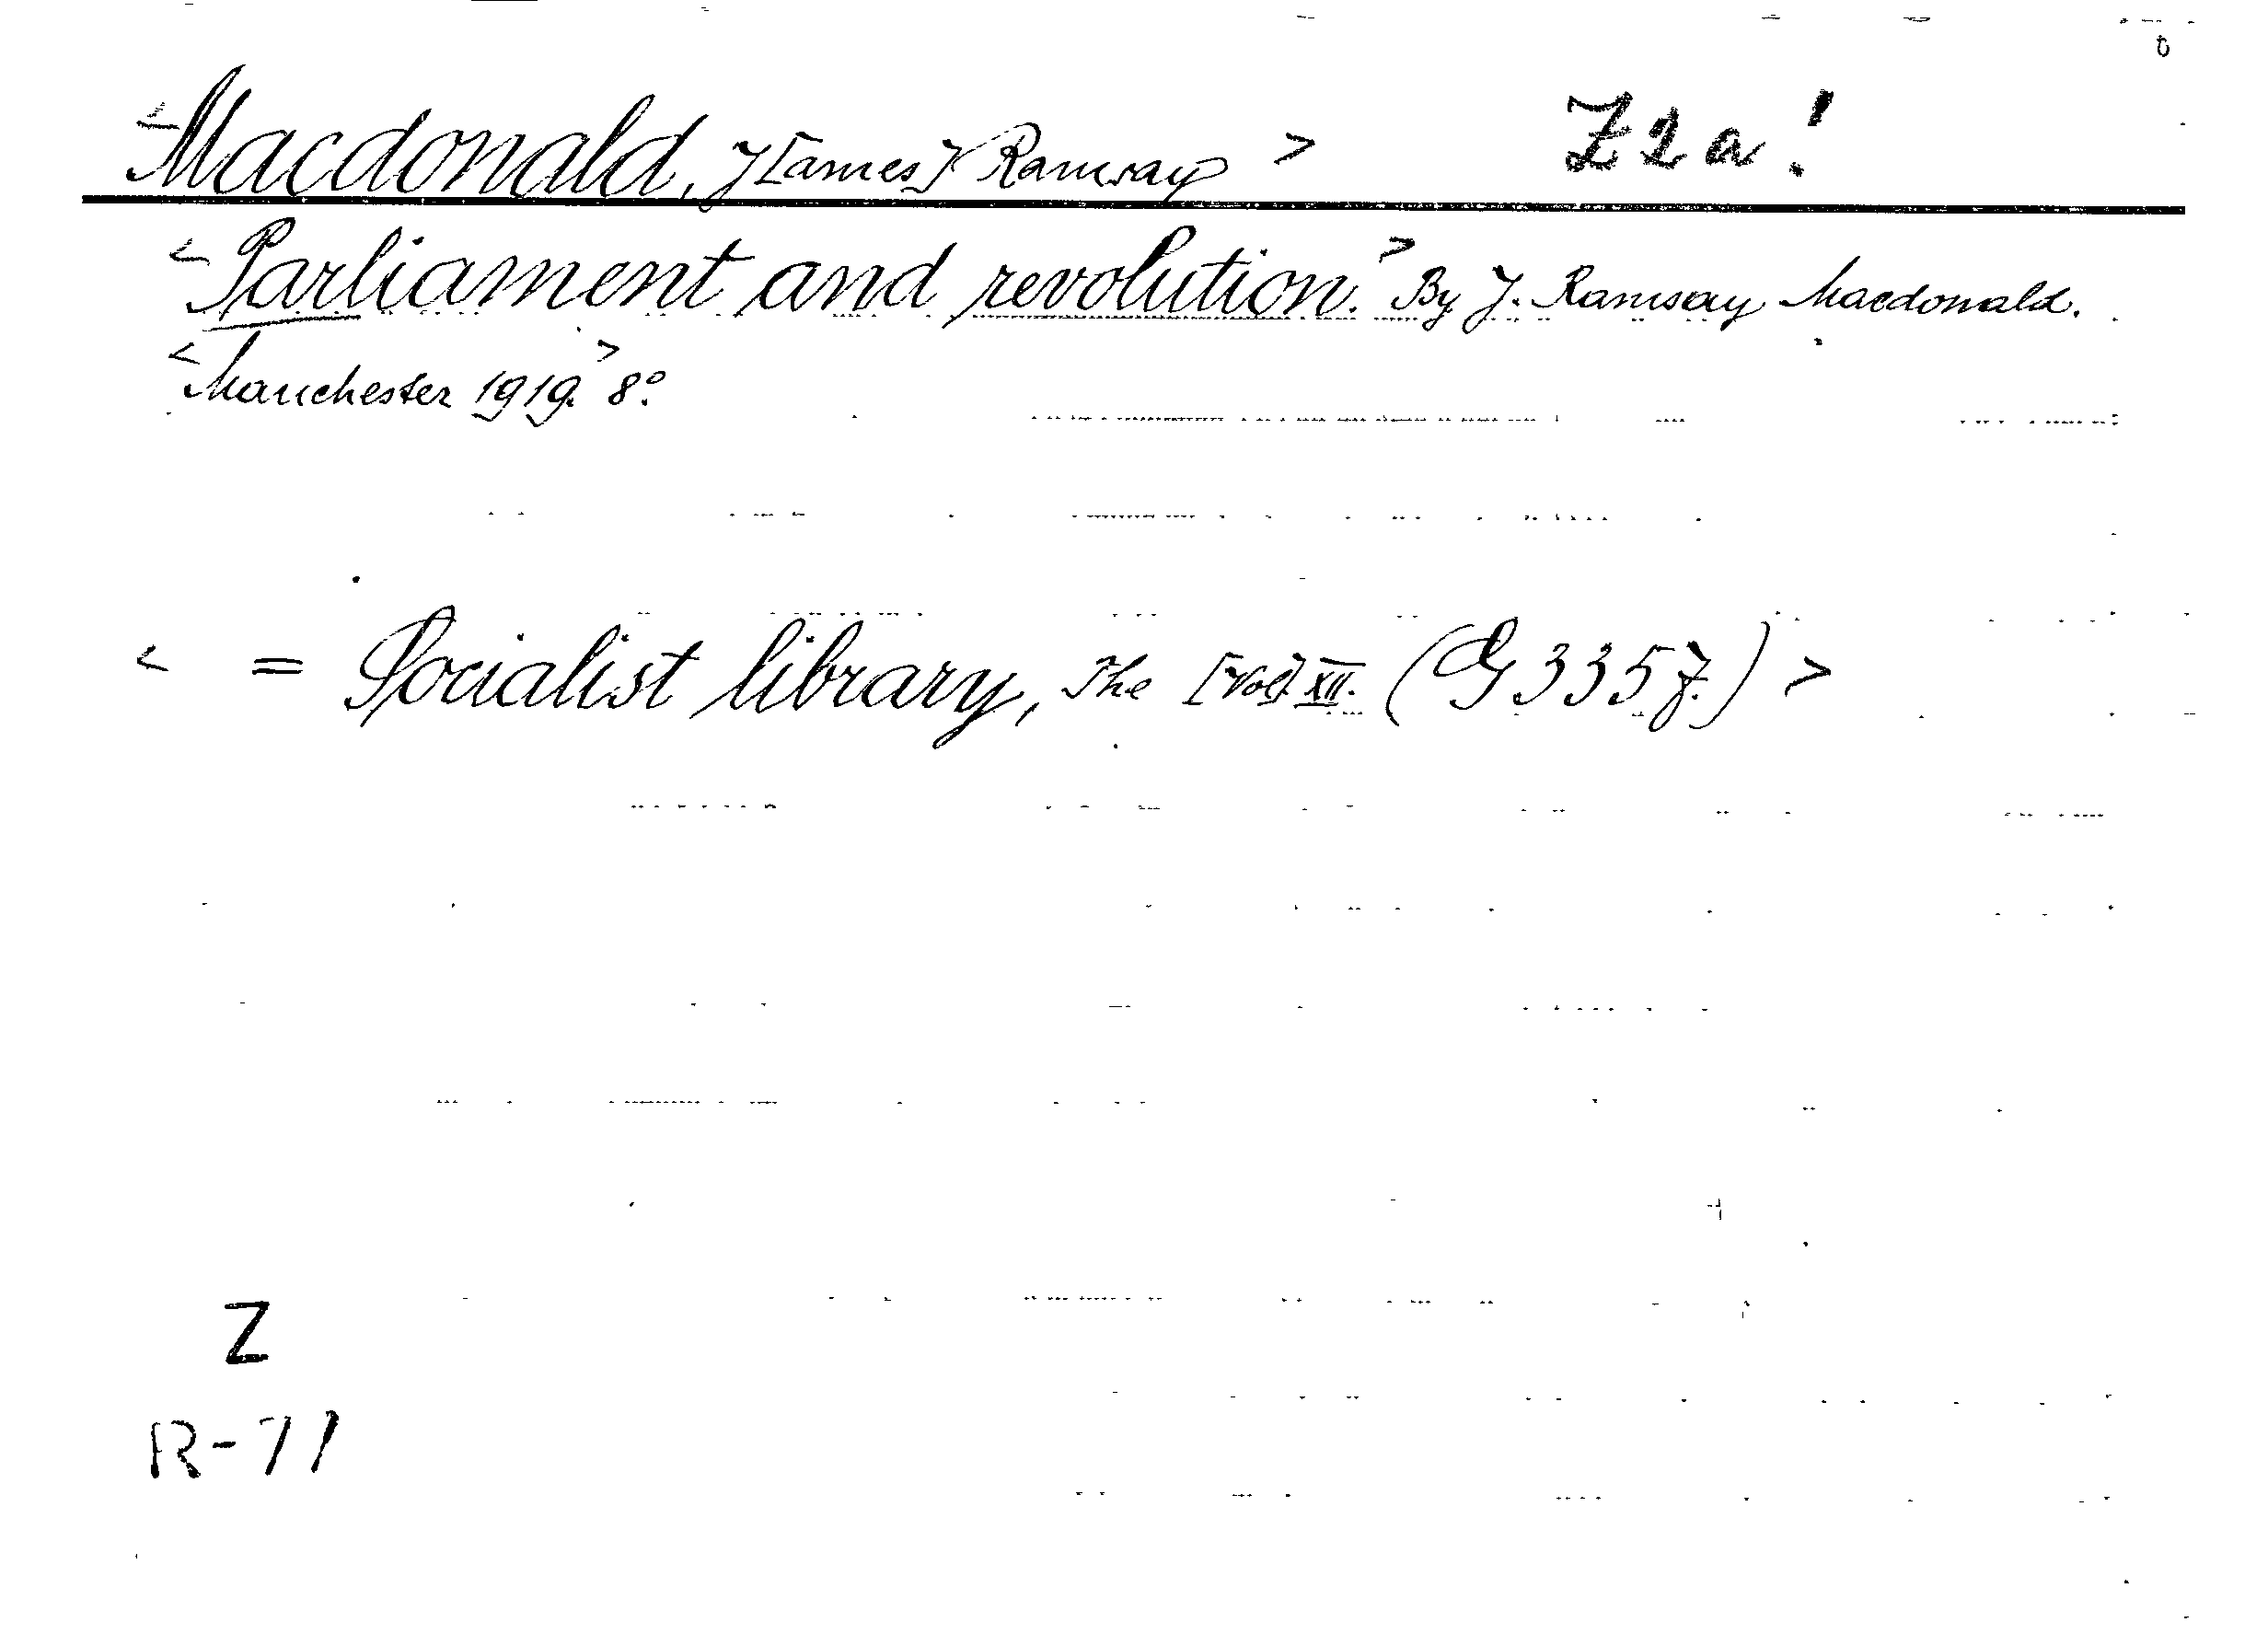 <Macdonald, J[ames] Ramsay> Z2a!
<Parliament and revolution.> By J. Ramsay Macdonald.
<Manchester 1919.> 8°.
< = Socialist library, The [Vol.] XII. (G 3357.) >
Z
R-71